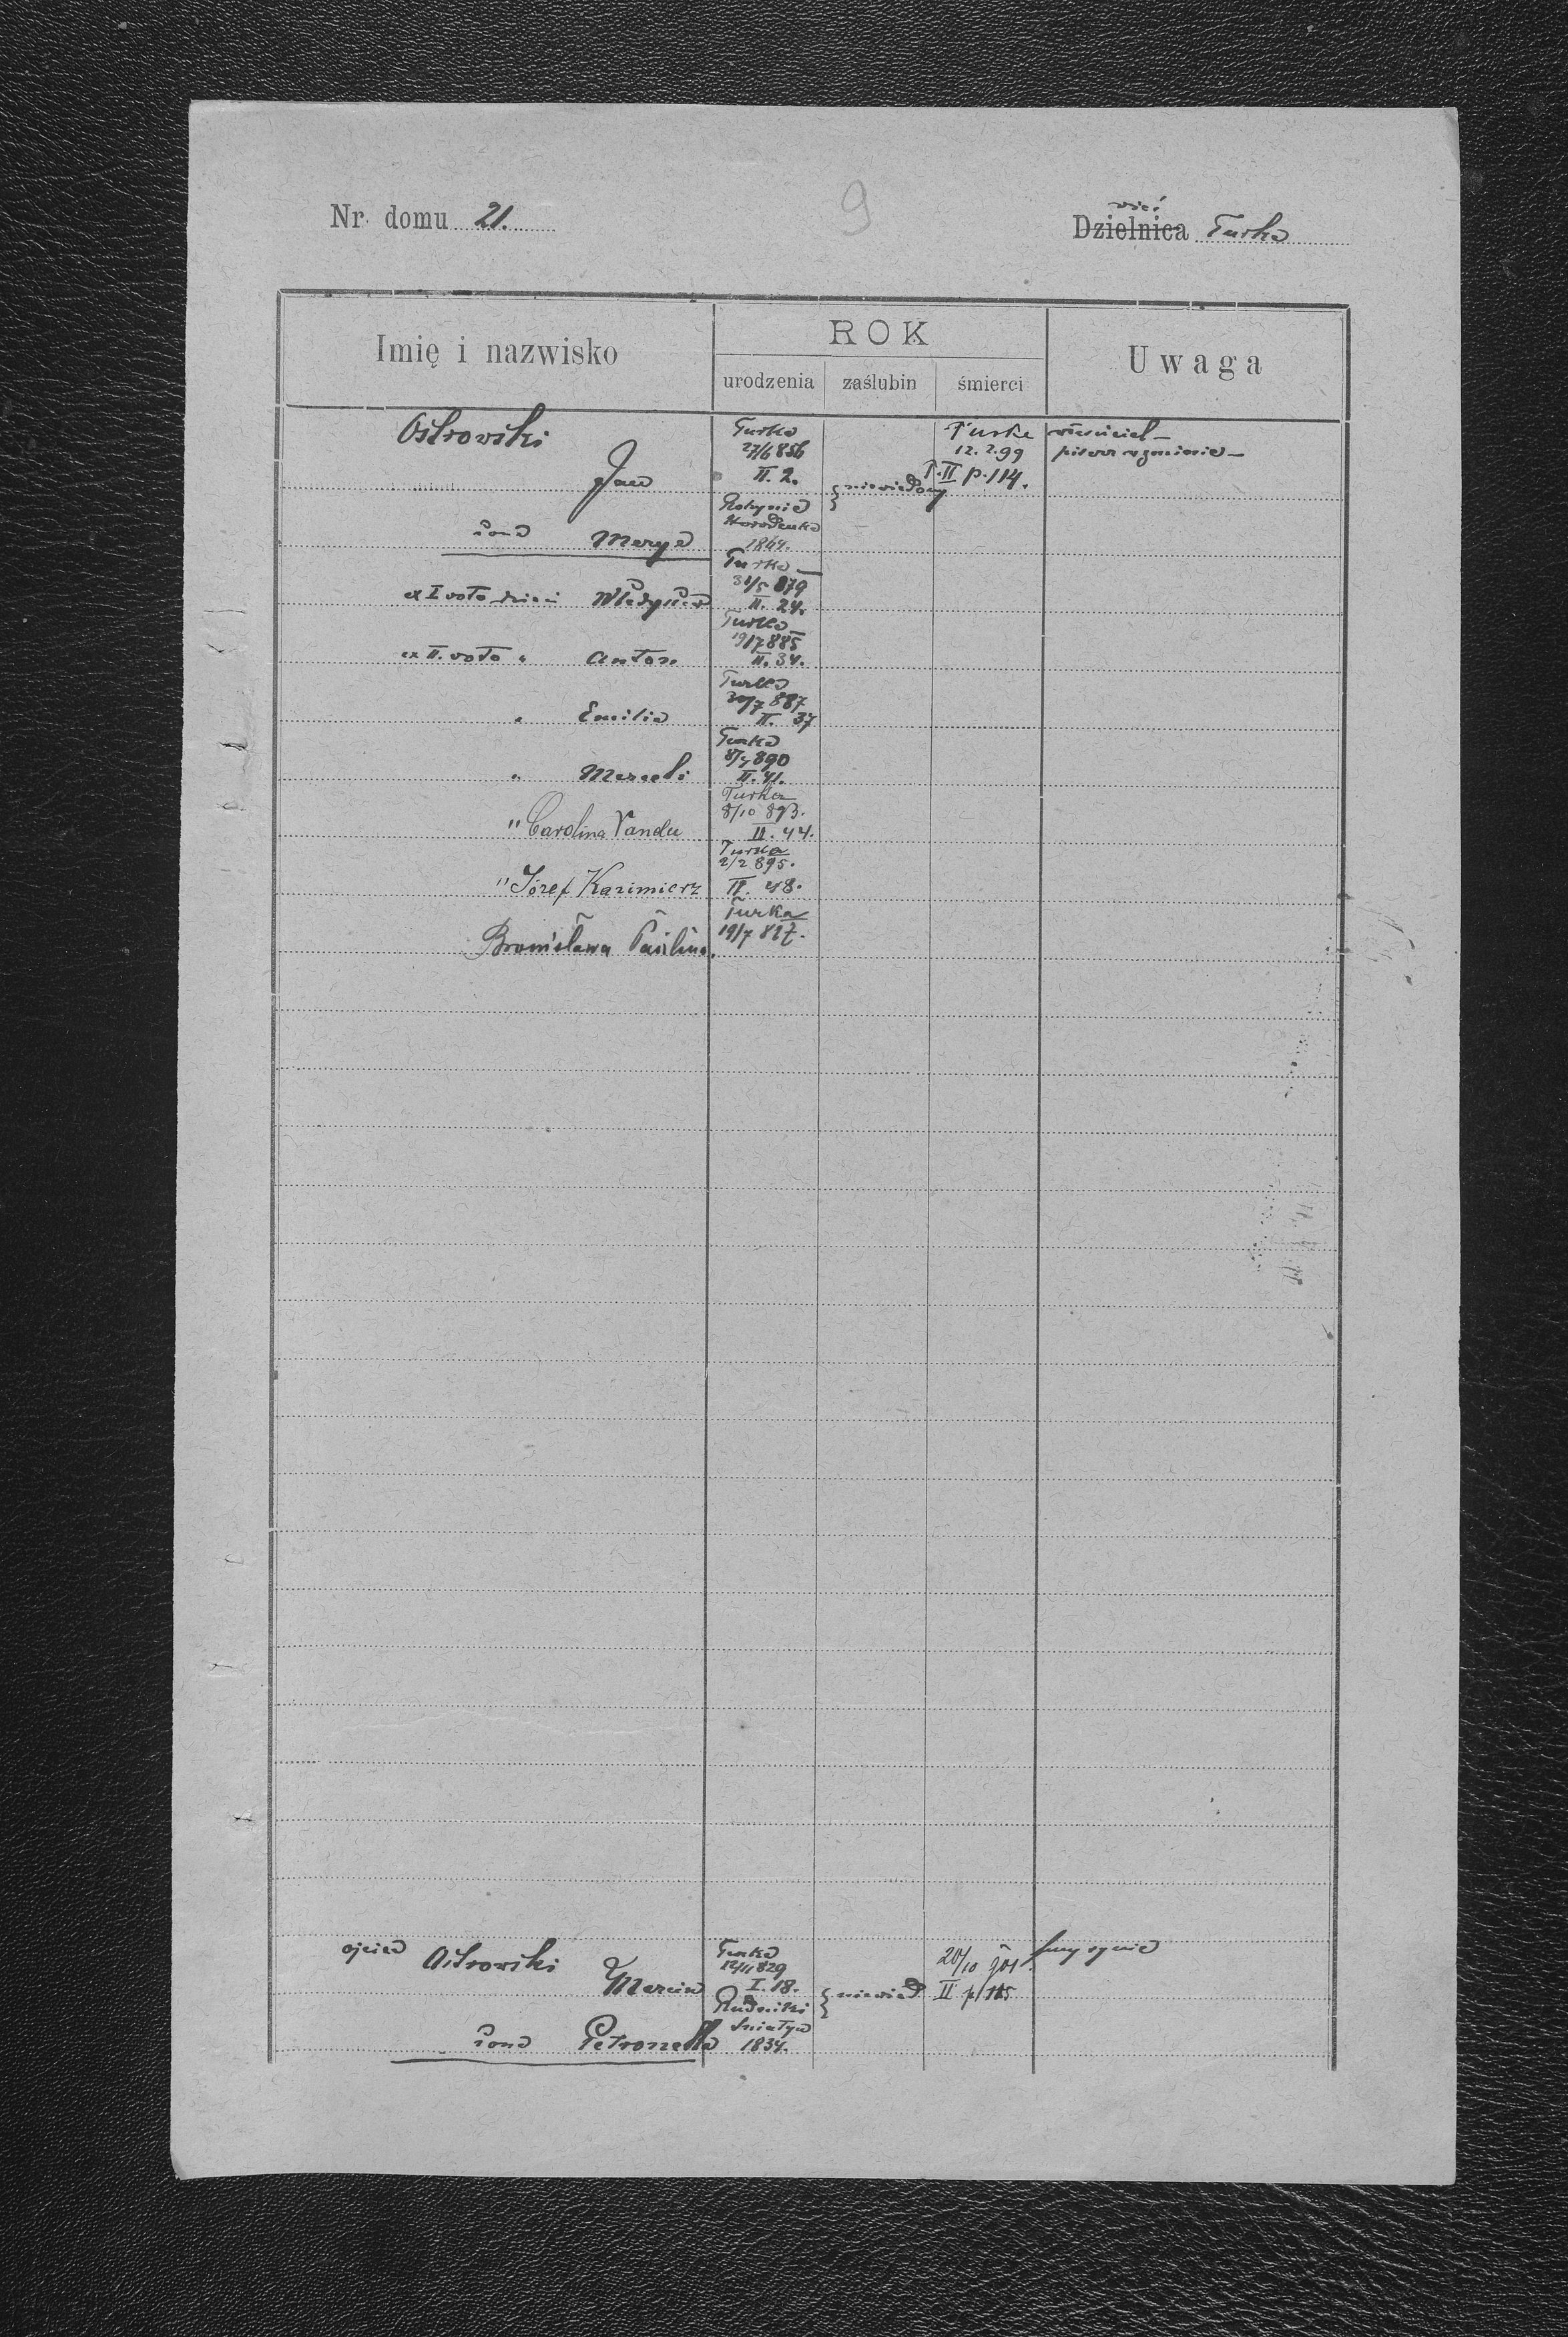 9
Nr domu 21.
wieś
Dzielnica Turka
Imię i nazwisko
ROK
urodzenia zaślubin śmierci
Uwaga
Ostrowski
Jan
Turka
27/6 856
II. 2.
niewiadomy
Turka
12.2.99
T. II p. 114.
właściciel –
żona Marya
Horodenka
1864.
ex I voto dzieci Władysław
Turka
31/5 879
II. 24.
ex II. voto " Anton
Turka
19/7 885
II. 34.
" Emilia
Turka
20/7 887
II. 37
" Marceli
Turka
8/4 890
II. 41.
" Carolina Vanda
Turka
8/10 893.
II. 44.
" Józef Kazimierz
Turka
2/2 895.
II. 48.
Bronisława Paulina.
Turka
19/7 897.
ojciec Ostrowski
Marcin
Turka
12/11 829
I. 18.
niewiad
20/10 901.
II p 115
przy synie
żona Petronella
Rudniki
Śniatyn
1834.